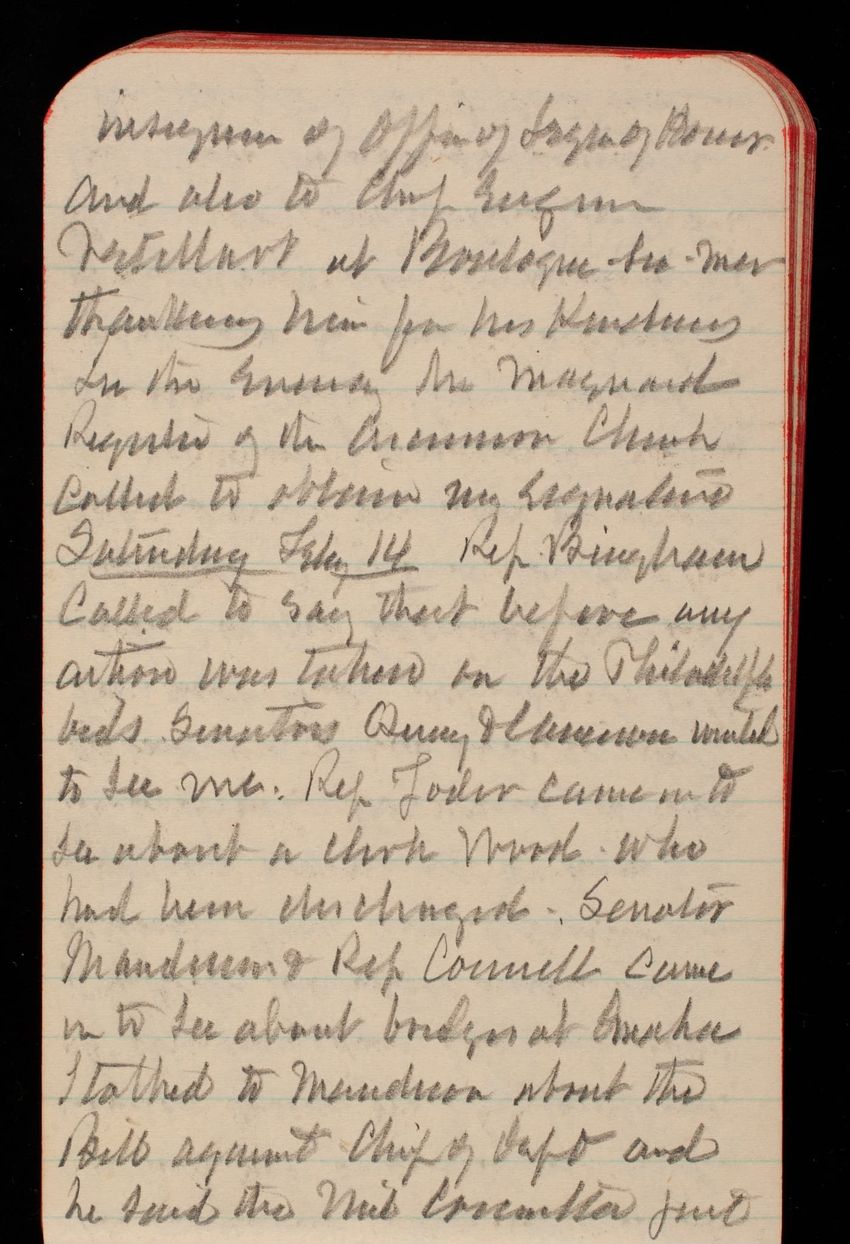 insignia of Officer of Legion of Honor
and also to Chief Engineer
Vetillart at Boulogne-sur-mer
thanking him for his Kindness
In the Evening Mr Maynard
Register of the Ascension Church
called to obtain my signature
Saturday Feby 14 Rep Bingham
Called to say that before any
action was taken on the Philadelphia
beds Senators Quay & Cameron wanted
to see me. Rep Yoder came in to
see about a clerk Wood who
had been discharged. Senator
Manderson & Rep Connell came
in to see about bridges at Omaha
I talked to Manderson about the
Bill against Chief of Dept and
he said the Mil Committee just